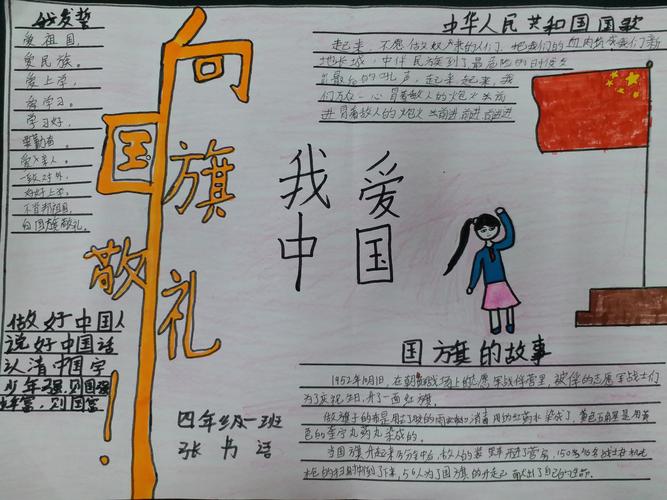 我发誓
爱祖国，
爱民族。
爱上学，
爱学习。
学习好，
爱亲人。
一致对外。
好好上学。
向国旗敬礼。
向国旗敬礼！
做好中国人
说好中国话
认清中国字
少年强，则国强
中华人民共和国国歌
起来，不愿做奴隶的人们，把我们的血肉筑成我们新
地长城，中华民族到了最危险的时候
最后的吼声，起来起来，我
们万众一心冒着敌人的炮火前进
进冒着敌人的炮火前进前进前进进
我爱
中国
国旗的故事
1952年10月1日，在朝鲜战场上的志愿军战俘营里，被俘的志愿军战士们
为了庆祝
升了一面红旗。
做旗子的布是用
消毒用的红药水染成了，黄色五角星是用黄
色的奎宁丸药丸染成的。
当国旗升起来
敌人的
枪的扫射中倒了下来，56人为了国旗的升起而献出了自己的
四年级一班
张书语